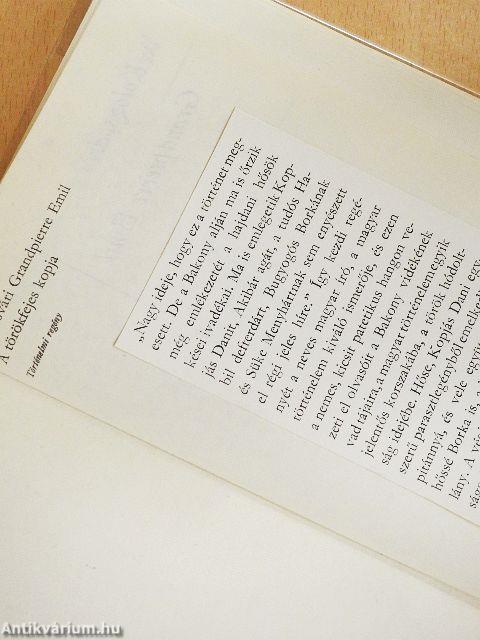 svári Grandpierre Emil
A törökfejes kopja
Történelmi regény
„Nagy ideje, hogy ez a történet meg-
esett. De a Bakony alján ma is őrzik
még emlékezetét a hajdani hősök
kései ivadékai. Ma is emlegetik Kop-
jás Danit, Akihár agát, a tudós Ha-
bil defterdárt. Bugyogós Borkának
és Süke Menyhártnak sem enyészett
el régi jeles híre." Így kezdi regé-
nyét a neves magyar író, a magyar
történelem kiváló ismerője, és ezen
a nemes, kicsit patetikus hangon ve-
zeti el olvasóit a Bakony vidékének
vad rájaira, a magyar történelem egyik
jelentős korszakába, a török hódolt-
ság idejébe. Hőse, Kopjás Dani egy-
szerű parasztlegényből emelked
pitánnyá, és vele együ
hőssé Borka is, a
lány. A
Antikvárium.hu